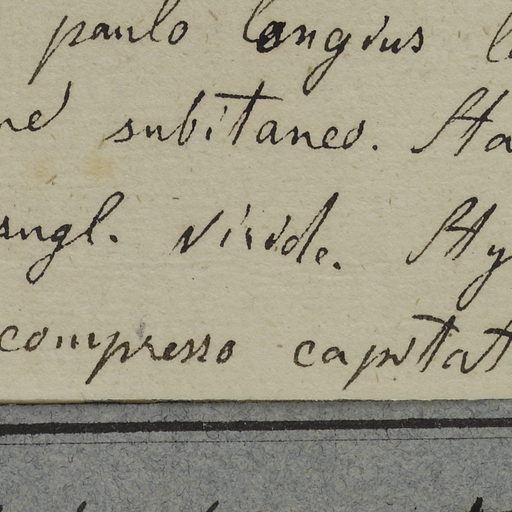 paulo longius
subitaneo. Ha
angl. viride. Hy
compresso capitat